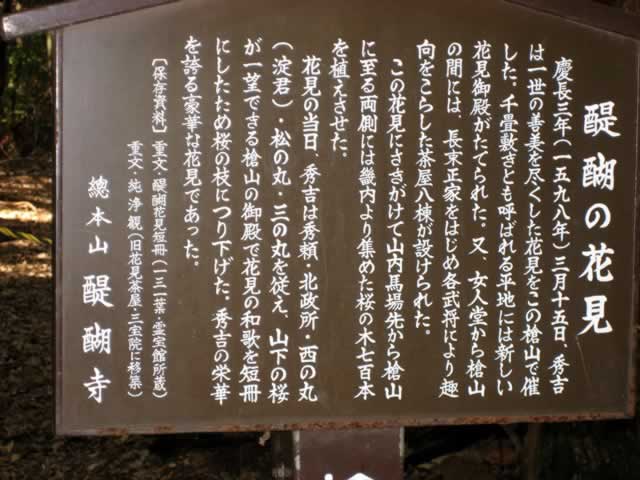 醍醐の花見
慶長三年(一五九八年)三月十五日、秀吉
は一世の善美を尽くした花見をこの槍山で催
した。千畳敷きとも呼ばれる平地には新しい
花見御殿がたてられた。又、女人堂から槍山
の間には、長束正家をはじめ各武将により趣
向をこらした茶屋八棟が設けられた。
この花見にさきがけて山内馬場先から槍山
に至る両側には畿内より集めた桜の木七百本
を植えさせた。
花見の当日、秀吉は秀頼・北政所・西の丸
(淀君)・松の丸・三の丸を従え、山下の桜
が一望できる槍山の御殿で花見の和歌を短冊
にしたため桜の枝につり下げた。秀吉の栄華
を誇る豪華は花見であった。
〔保存資料〕重文・醍醐花見短冊(一三一葉・霊宝館所蔵)
重文・純浄観(旧花見茶屋・三宝院に移築)
總本山 醍醐寺